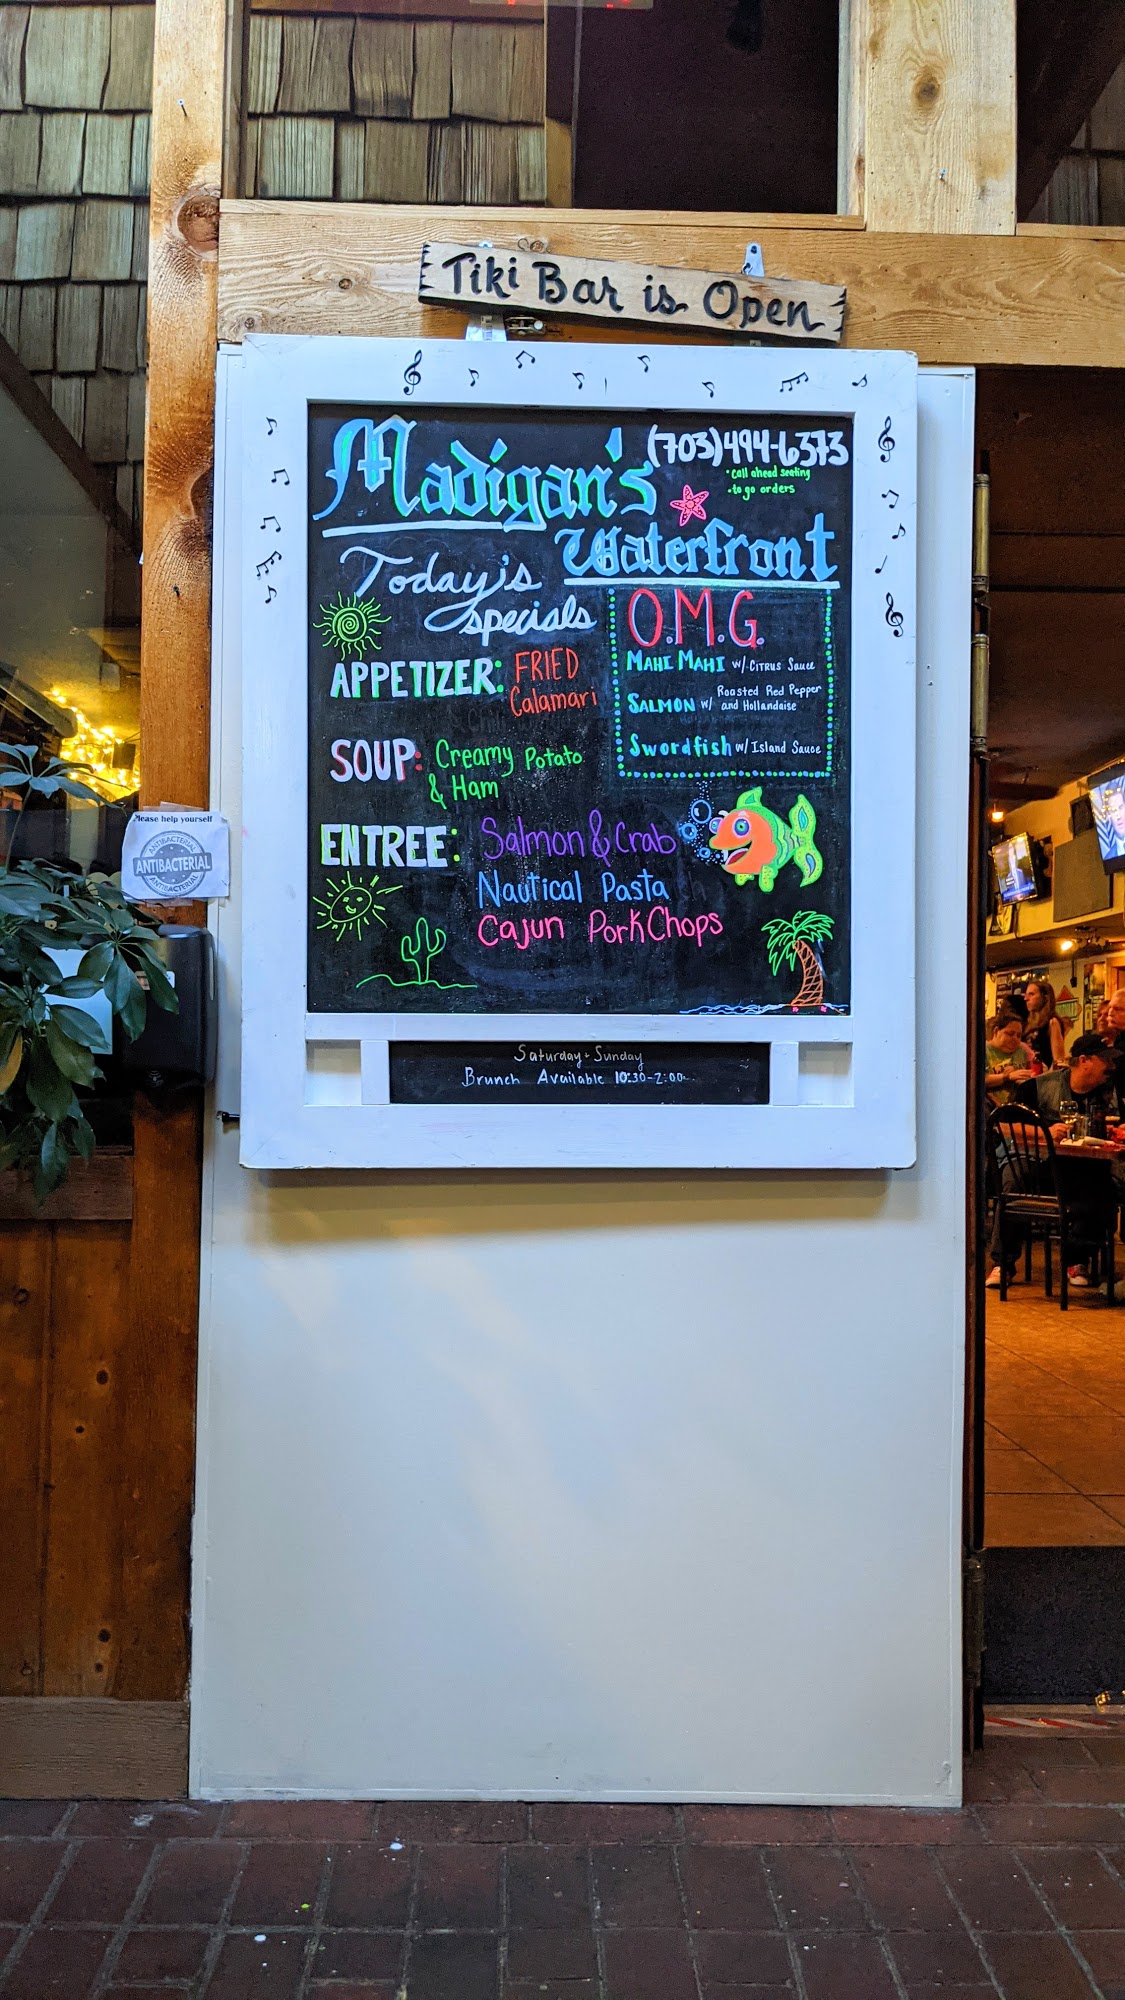 Tiki Bar is Open
Madigan's
Waterfront
(703)494-6373
• Call ahead seating
• to go orders
Today's
specials
APPETIZER: FRIED
Calamari
SOUP: Creamy Potato
& Ham
ENTREE: Salmon & Crab
Nautical Pasta
Cajun Pork Chops
O.M.G.
MAHI MAHI w/ CITRUS Sauce
SALMON w/ Roasted Red Pepper
and Hollandaise
Swordfish w/ Island Sauce
Saturday + Sunday
Brunch Available 10:30-2:00
Please help yourself
ANTIBACTERIAL
ANTIBACTERIAL
ANTIBACTERIAL